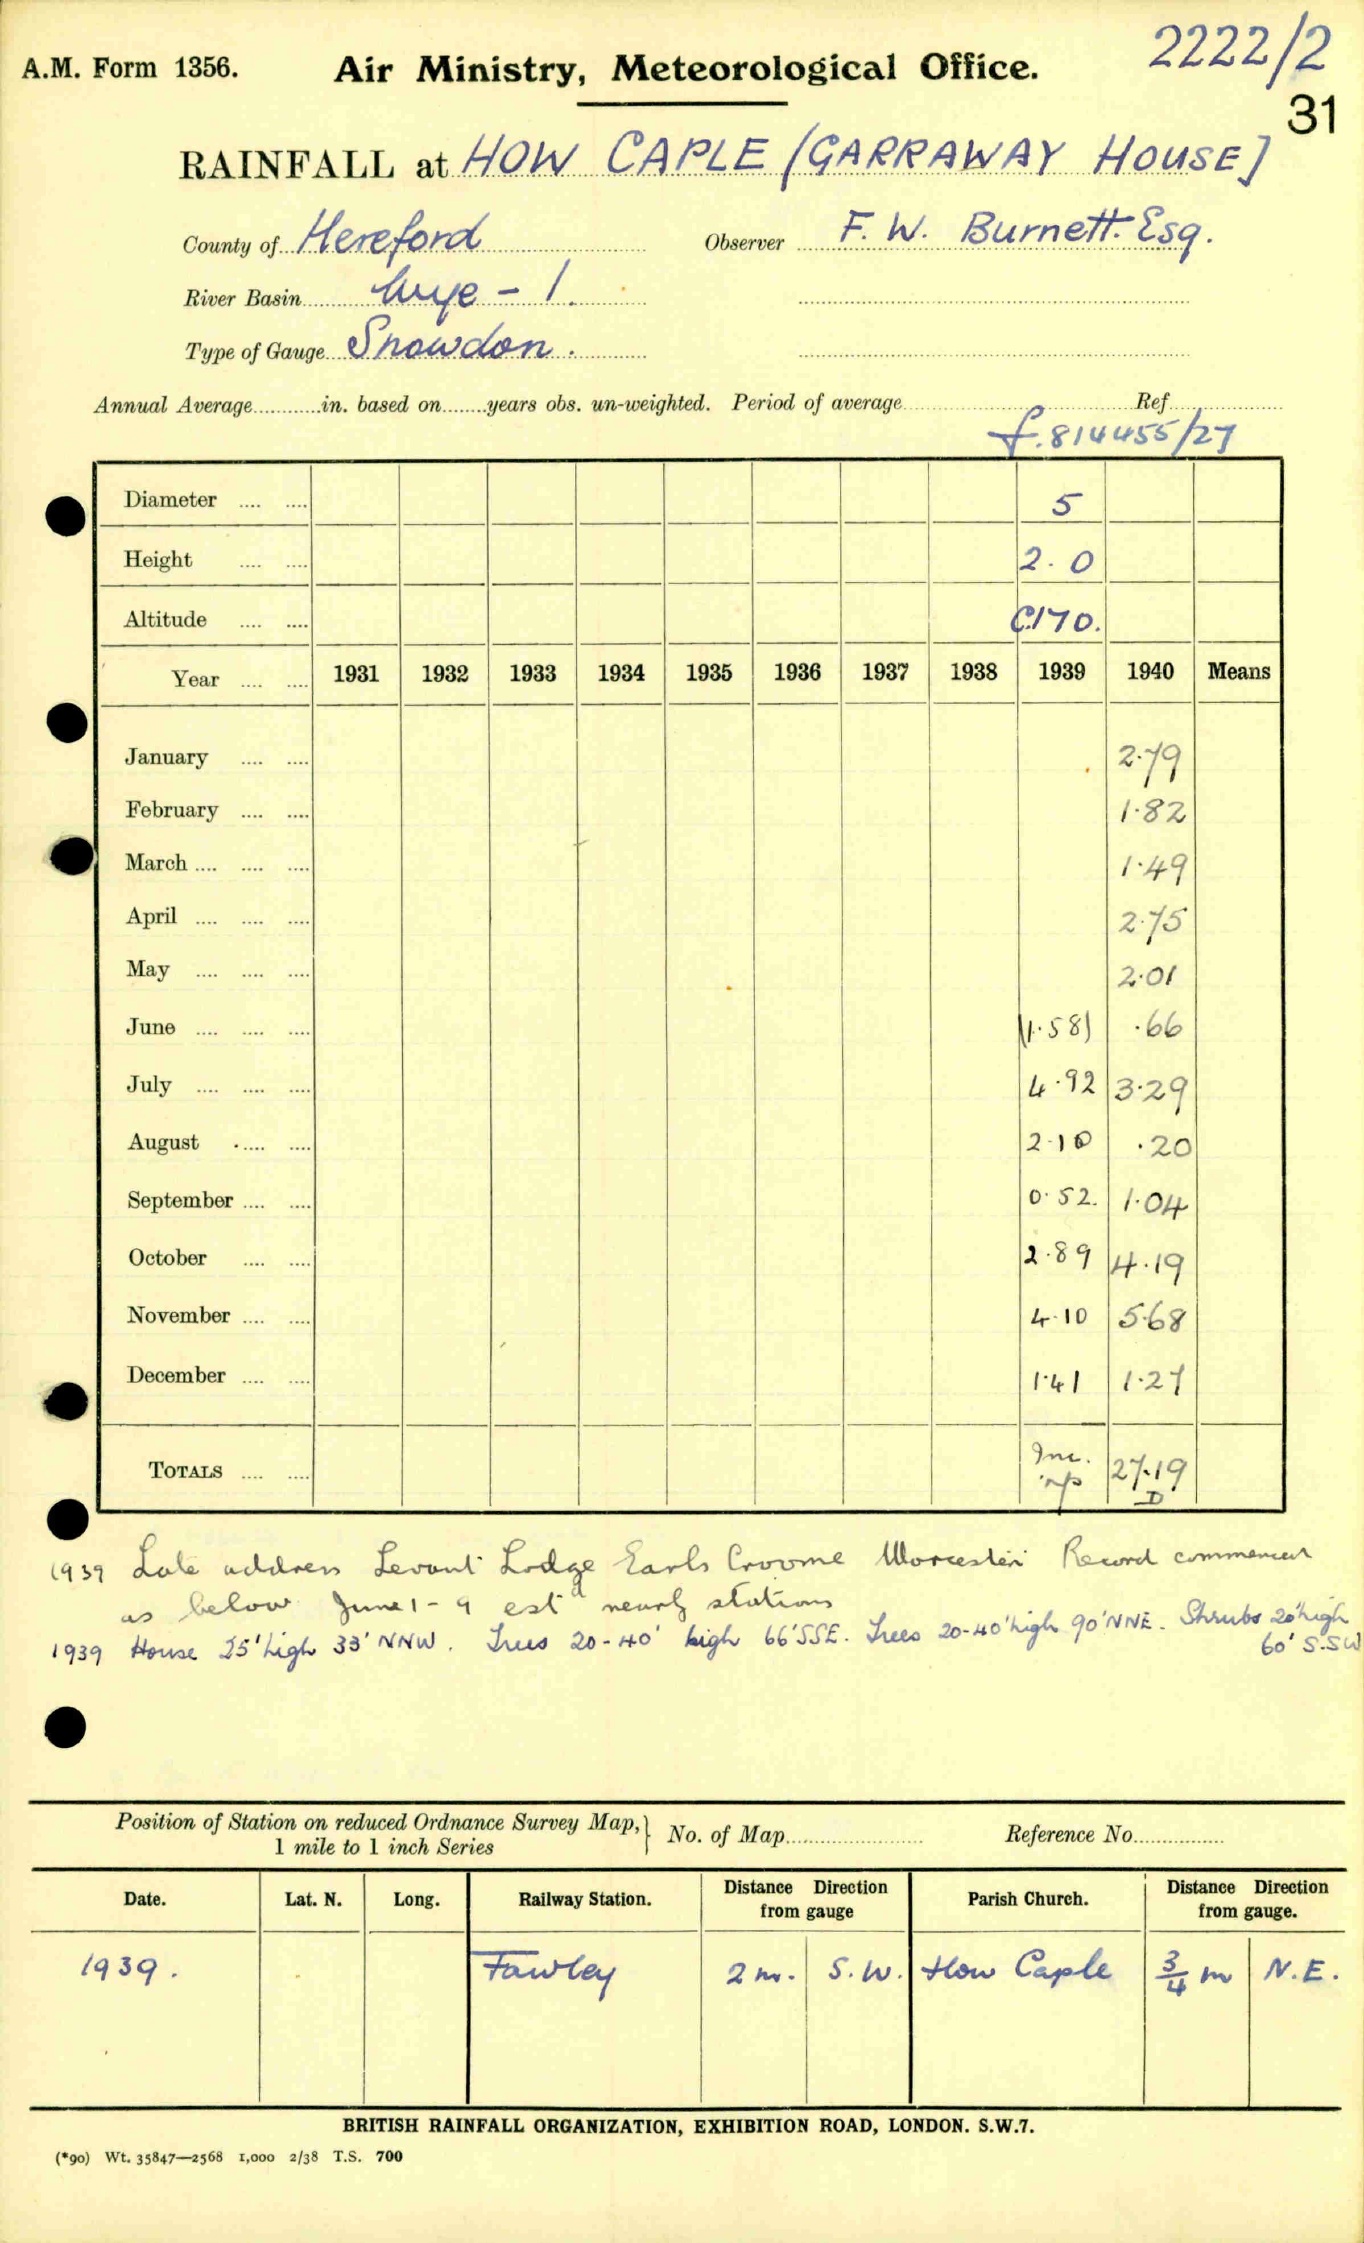 2222/2
A.M. Form 1356. Air Ministry, Meteorological Office.
31
RAINFALL at HOW CAPLE (GARRAWAY HOUSE]
County of Hereford Observer F. W. Burnett. Esq.
River Basin Wye - 1.
Type of Gauge Snowdon.
Annual Average in. based on years obs. un-weighted. Period of average Ref
f.814455/27
Diameter 5
Height 2. 0
Altitude C.170.
Year 1931 1932 1933 1934 1935 1936 1937 1938 1939 1940 Means
January 2.79
February 1.82
March 1.49
April 2.75
May 2.01
June (1.58) .66
July 4.92 3.29
August 2.10 .20
September 0.52. 1.04
October 2.89 4.19
November 4.10 5.68
December 1.41 1.27
TOTALS Inc. 27.19
D
1939 Late address Levant Lodge Earls Croome Worcester Record commences
as below June 1 - 9 estd nearby stations
1939 House 25' high 33' NNW. Trees 20-40' high 66' SSE. Trees 20-40' high 90' NNE. Shrubs 20' high
60' S.SW
Position of Station on reduced Ordnance Survey Map, } No. of Map Reference No.
1 mile to 1 inch Series
Date. Lat. N. Long. Railway Station. Distance Direction from gauge Parish Church. Distance Direction from gauge.
1939. Fawley 2 m. S.W. How Caple 3/4 m N.E.
BRITISH RAINFALL ORGANIZATION, EXHIBITION ROAD, LONDON. S.W.7.
(*90) Wt. 35847—2568 1,000 2/38 T.S. 700